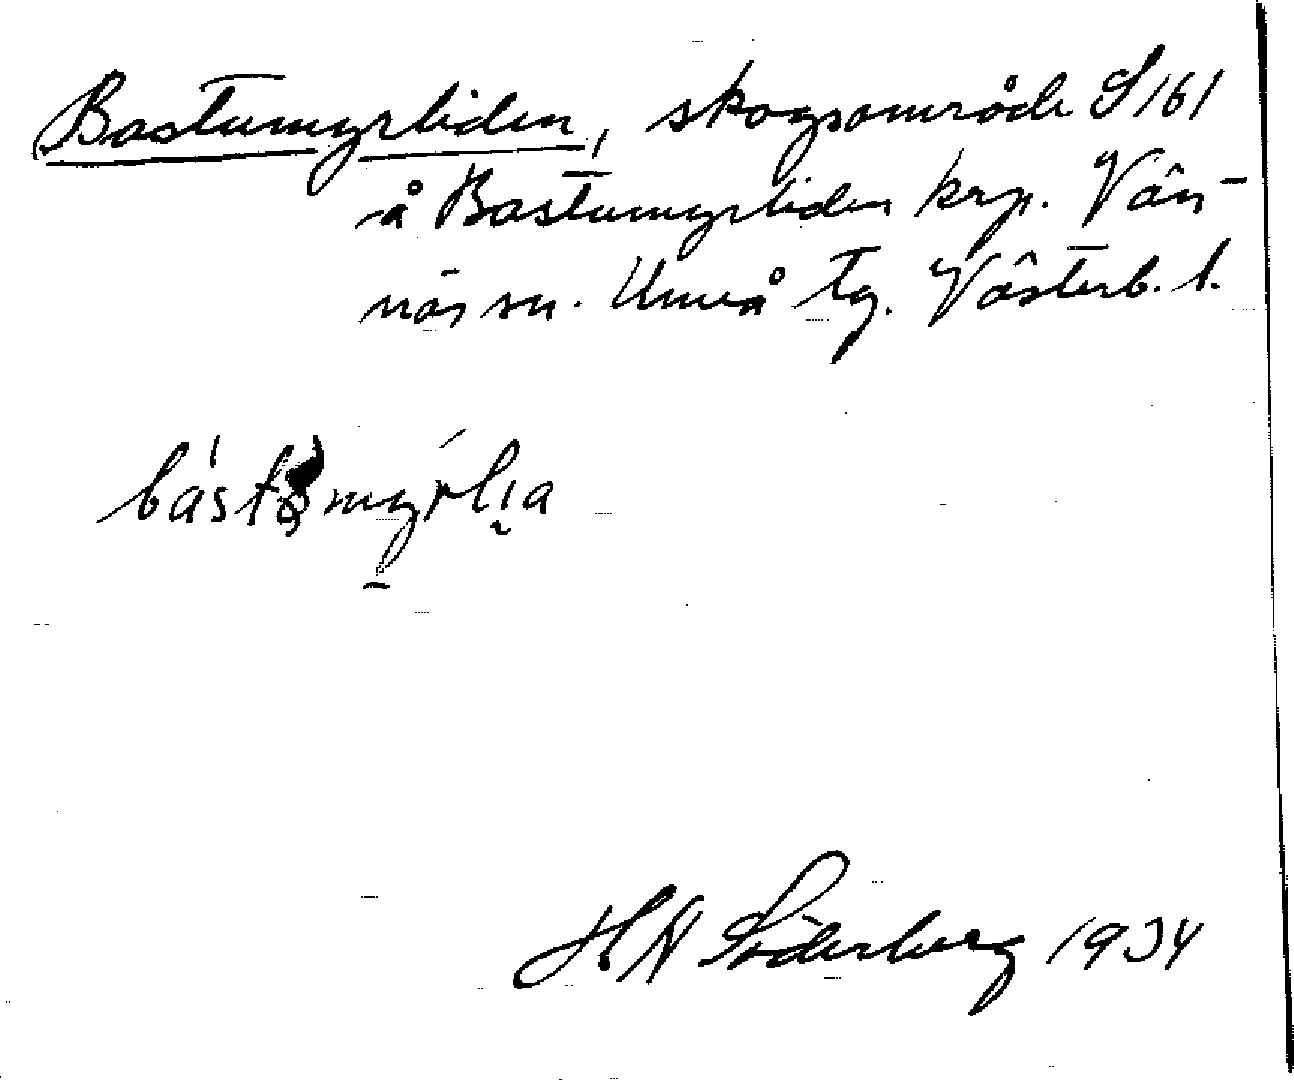 Bastumyrliden, skogsområde S 161
å Bastumyrliden krp. Vän-
näs sn. Umeå tg. Västerb. l.
H N Söderberg 1934